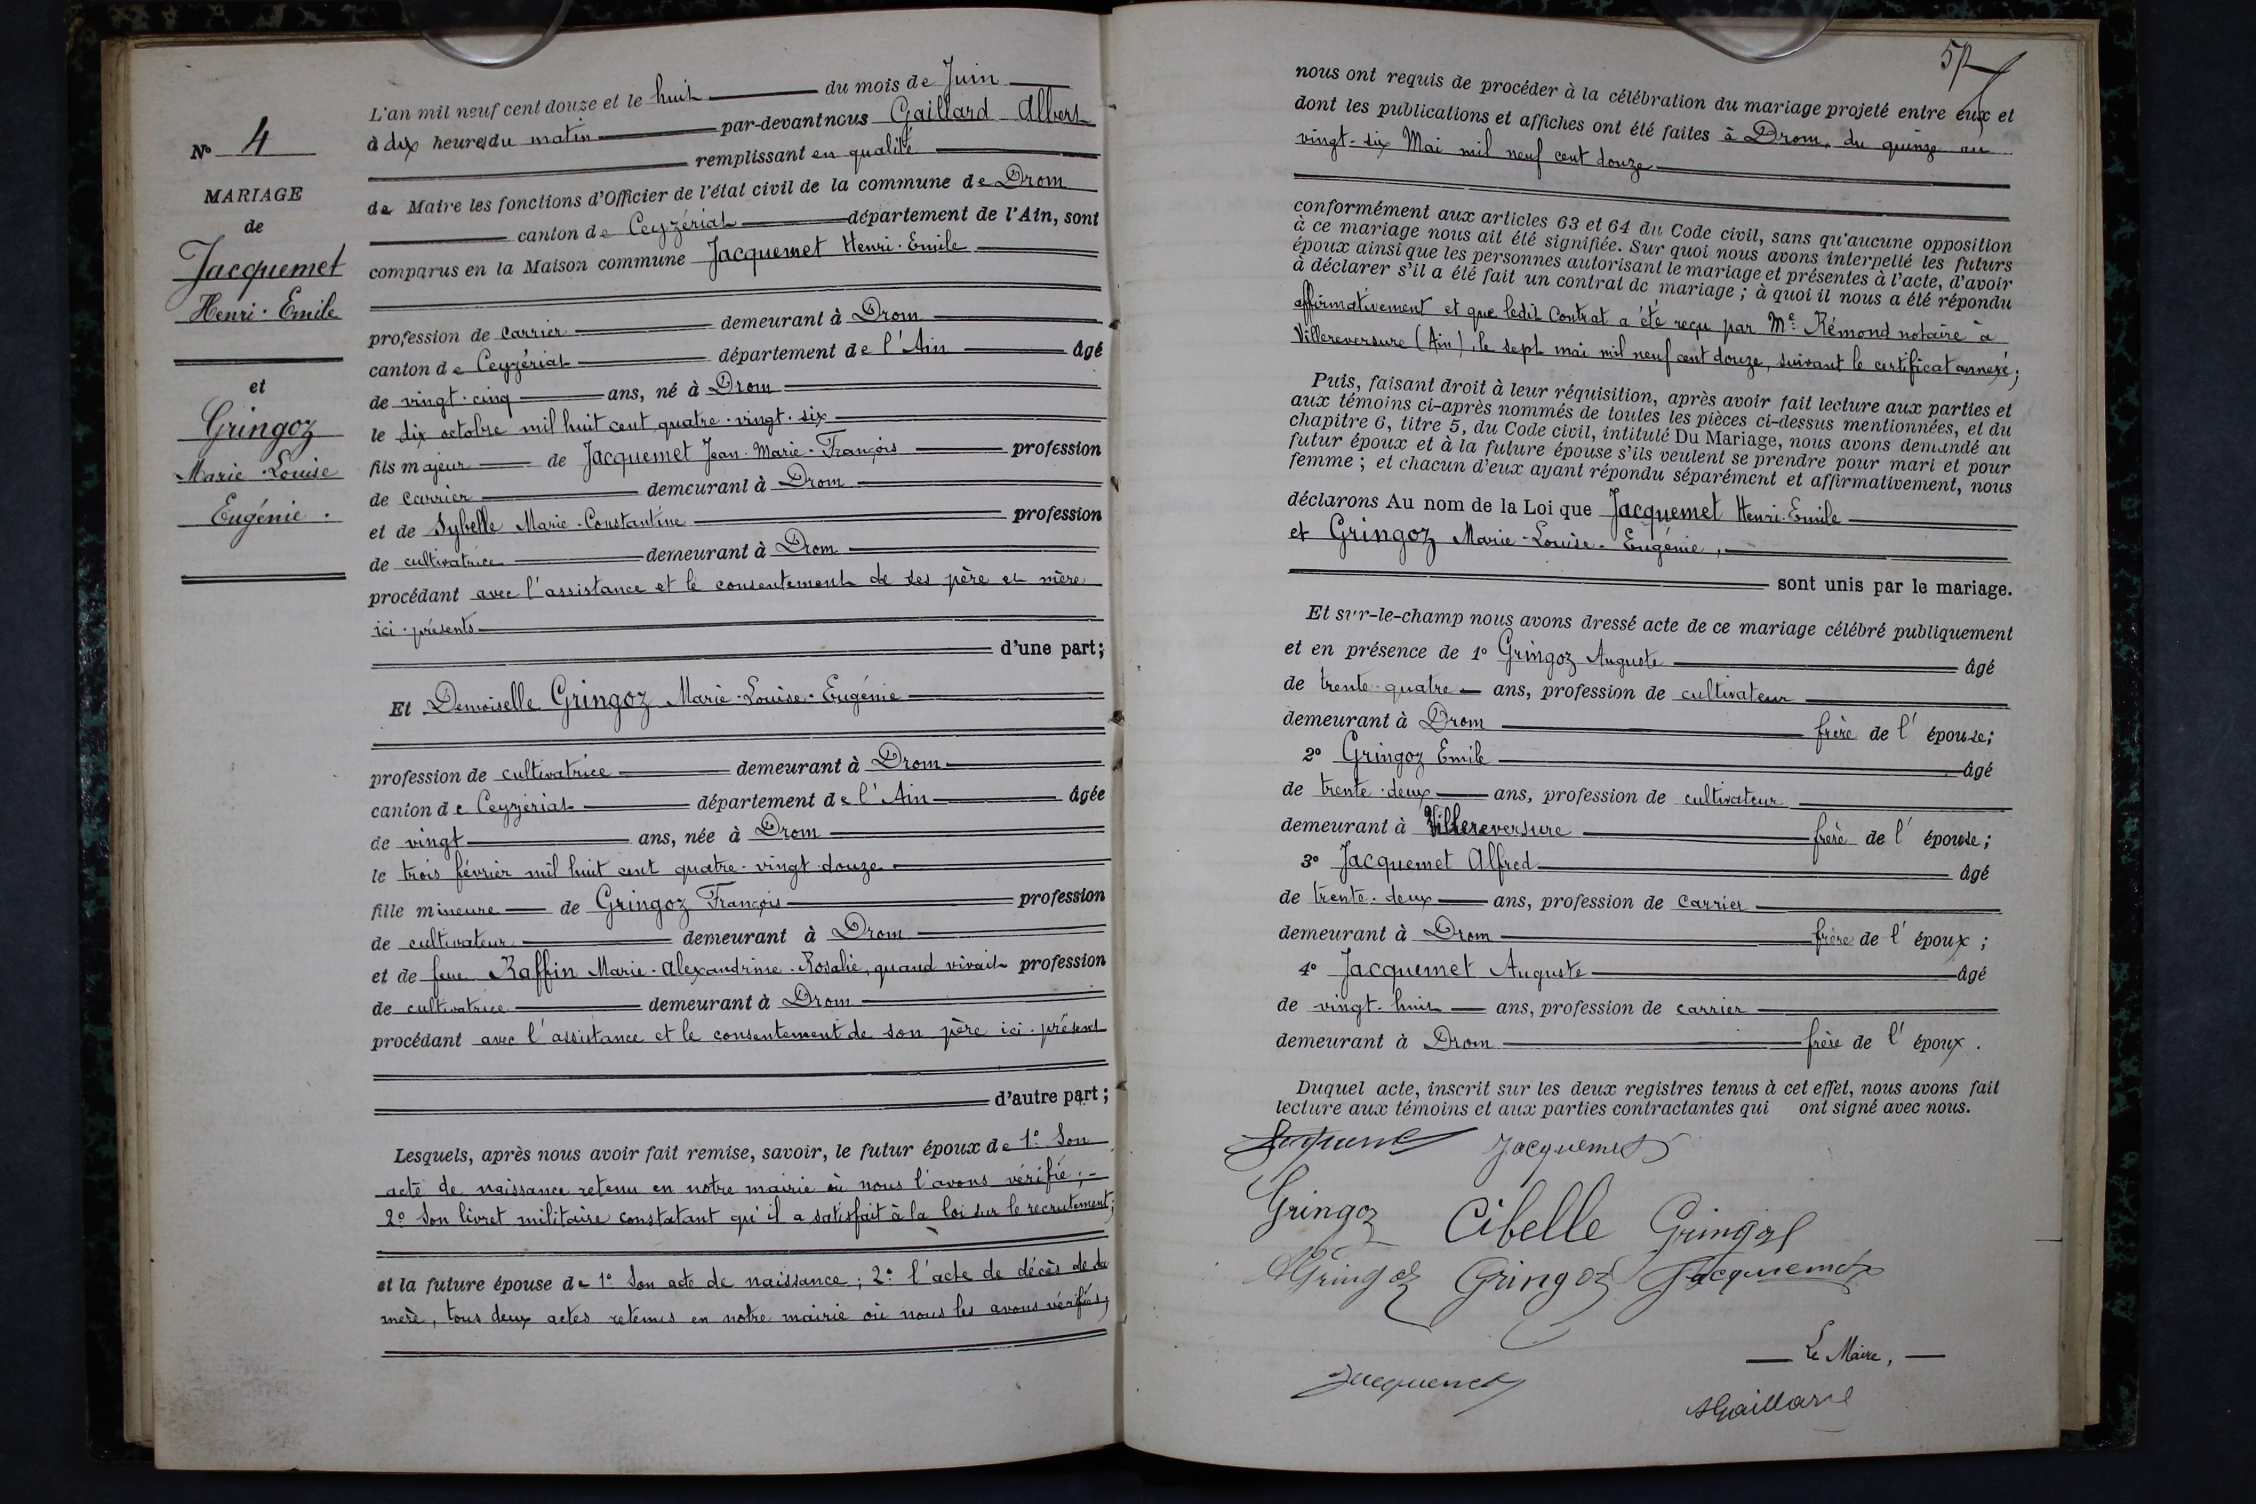 N° 4
MARIAGE
de
Jacquemet
Henri-Emile
et
Gringoz
Marie-Louise
Eugénie.
L'an mil neuf cent douze et le huit du mois de Juin
à dix heures du matin par-devant nous Gaillard Albert
remplissant en qualité
de Maire les fonctions d'Officier de l'état civil de la commune de Drom
canton de Ceyzériat département de l'Ain, sont
comparus en la Maison commune Jacquemet Henri-Emile
profession de carrier demeurant à Drom
canton de Ceyzériat département de l'Ain âgé
de vingt-cinq ans, né à Drom
le dix octobre mil huit cent quatre-vingt-six
fils majeur de Jacquemet Jean-Marie-François profession
de carrier demeurant à Drom
et de Sybelle Marie-Constantine profession
de cultivatrice demeurant à Drom
procédant avec l'assistance et le consentement de ses père et mère
ici-présents
d'une part;
Et Demoiselle Gringoz Marie-Louise-Eugénie
profession de cultivatrice demeurant à Drom
canton de Ceyzériat département de l'Ain âgée
de vingt ans, née à Drom
le trois février mil huit cent quatre-vingt-douze
fille mineure de Gringoz François profession
de cultivateur demeurant à Drom
et de feue Raffin Marie-Alexandrine-Rosalie, quand vivait profession
de cultivatrice demeurant à Drom
procédant avec l'assistance et le consentement de son père ici-présent
d'autre part;
Lesquels, après nous avoir fait remise, savoir, le futur époux de 1° Son
acte de naissance retenu en notre mairie où nous l'avons vérifié;-
2° Son livret militaire constatant qu'il a satisfait à la loi sur le recrutement;
et la future épouse de 1° Son acte de naissance; 2° l'acte de décès de sa
mère, tous deux actes retenus en notre mairie où nous les avons vérifiés;
nous ont requis de procéder à la célébration du mariage projeté entre eux et
dont les publications et affiches ont été faites à Drom, du quinze au
vingt-six Mai mil neuf cent douze
conformément aux articles 63 et 64 du Code civil, sans qu'aucune opposition
à ce mariage nous ait été signifiée. Sur quoi nous avons interpellé les futurs
époux ainsi que les personnes autorisant le mariage et présentes à l'acte, d'avoir
à déclarer s'il a été fait un contrat de mariage; à quoi il nous a été répondu
affirmativement et que ledit Contrat a été reçu par Me Rémond notaire à
Villereversure (Ain), le sept mai mil neuf cent douze, suivant le certificat annexé;
Puis, faisant droit à leur réquisition, après avoir fait lecture aux parties et
aux témoins ci-après nommés de toutes les pièces ci-dessus mentionnées, et du
chapitre 6, titre 5, du Code civil, intitulé Du Mariage, nous avons demandé au
futur époux et à la future épouse s'ils veulent se prendre pour mari et pour
femme; et chacun d'eux ayant répondu séparément et affirmativement, nous
déclarons Au nom de la Loi que Jacquemet Henri-Emile
et Gringoz Marie-Louise-Eugénie,
sont unis par le mariage.
Et sur-le-champ nous avons dressé acte de ce mariage célébré publiquement
et en présence de 1° Gringoz Auguste âgé
de trente-quatre ans, profession de cultivateur
demeurant à Drom frère de l'épouse;
2° Gringoz Emile âgé
de trente-deux ans, profession de cultivateur
demeurant à Villereversure frère de l'épouse;
3° Jacquemet Alfred âgé
de trente-deux ans, profession de carrier
demeurant à Drom frère de l'époux;
4° Jacquemet Auguste âgé
de vingt-huit ans, profession de carrier
demeurant à Drom frère de l'époux.
Duquel acte, inscrit sur les deux registres tenus à cet effet, nous avons fait
lecture aux témoins et aux parties contractantes qui ont signé avec nous.
Jacquemet Jacquemet
Gringoz Cibelle Gringoz
Gringoz Gringoz Jacquemet
Jacquemet
Le Maire,
AGaillard